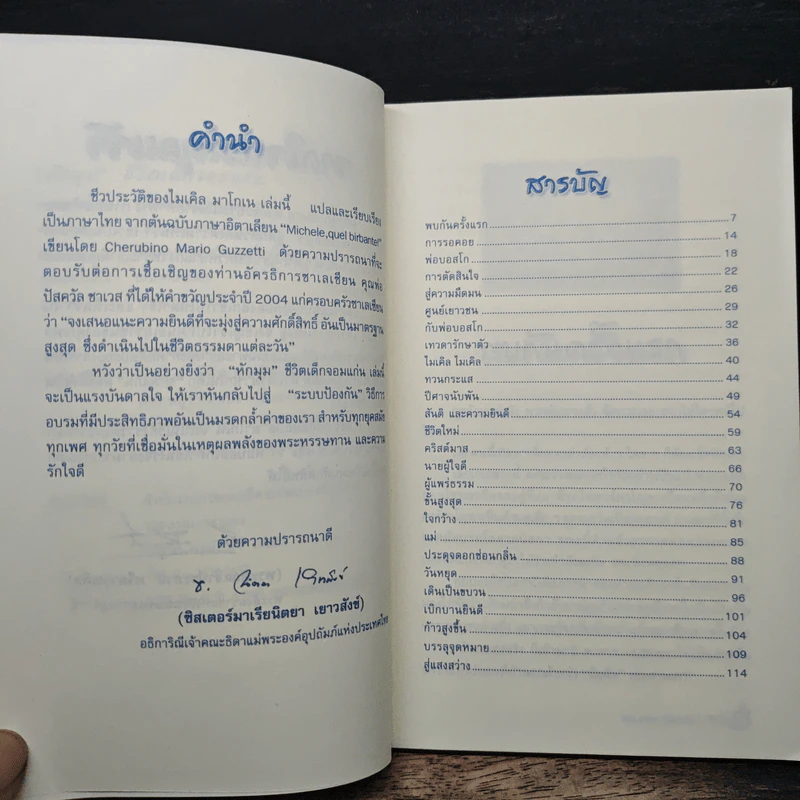 คำนำ
ชีวประวัติของไมเคิล มาโกเน เล่มนี้ แปลและเรียบเรียง
เป็นภาษาไทย จากต้นฉบับภาษาอิตาเลียน “Michele,quel birbante!”
เขียนโดย Cherubino Mario Guzzetti ด้วยความปรารถนาที่จะ
ตอบรับต่อการเชื้อเชิญของท่านอัครธิการซาเลเซียน คุณพ่อ
ปัสควัล ชาเวส ที่ได้ให้คำขวัญประจำปี 2004 แก่ครอบครัวซาเลเซียน
ว่า “จงเสนอแนะความยินดีที่จะมุ่งสู่ความศักดิ์สิทธิ์ อันเป็นมาตรฐาน
สูงสุด ซึ่งดำเนินไปในชีวิตธรรมดาแต่ละวัน”
หวังว่าเป็นอย่างยิ่งว่า “หักมุม” ชีวิตเด็กจอมแก่น เล่มนี้
จะเป็นแรงบันดาลใจ ให้เราหันกลับไปสู่ “ระบบป้องกัน” วิธีการ
อบรมที่มีประสิทธิภาพอันเป็นมรดกล้ำค่าของเรา สำหรับทุกยุคสมัย
ทุกเพศ ทุกวัยที่เชื่อมั่นในเหตุผลพลังของพระหรรษทาน และความ
รักใจดี
ด้วยความปรารถนาดี
(ซิสเตอร์มาเรียนิตยา เยาวสังข์)
อธิการิณีเจ้าคณะธิดาแม่พระองค์อุปถัมภ์แห่งประเทศไทย
สารบัญ
พบกันครั้งแรก 7
การรอคอย 14
พ่อบอสโก 18
การตัดสินใจ 22
สู่ความมืดมน 26
ศูนย์เยาวชน 29
กับพ่อบอสโก 32
เทวดารักษาตัว 36
ไมเคิล ไมเคิล 40
ทวนกระแส 44
ปีศาจนับพัน 49
สันติ และความยินดี 54
ชีวิตใหม่ 59
คริสต์มาส 63
นายผู้ใจดี 66
ผู้แพร่ธรรม 70
ขั้นสูงสุด 76
ใจกว้าง 81
แม่ 85
ประดุจดอกซ่อนกลิ่น 88
วันหยุด 91
เดินเป็นขบวน 96
เบิกบานยินดี 101
ก้าวสูงขึ้น 104
บรรลุจุดหมาย 109
สู่แสงสว่าง 114